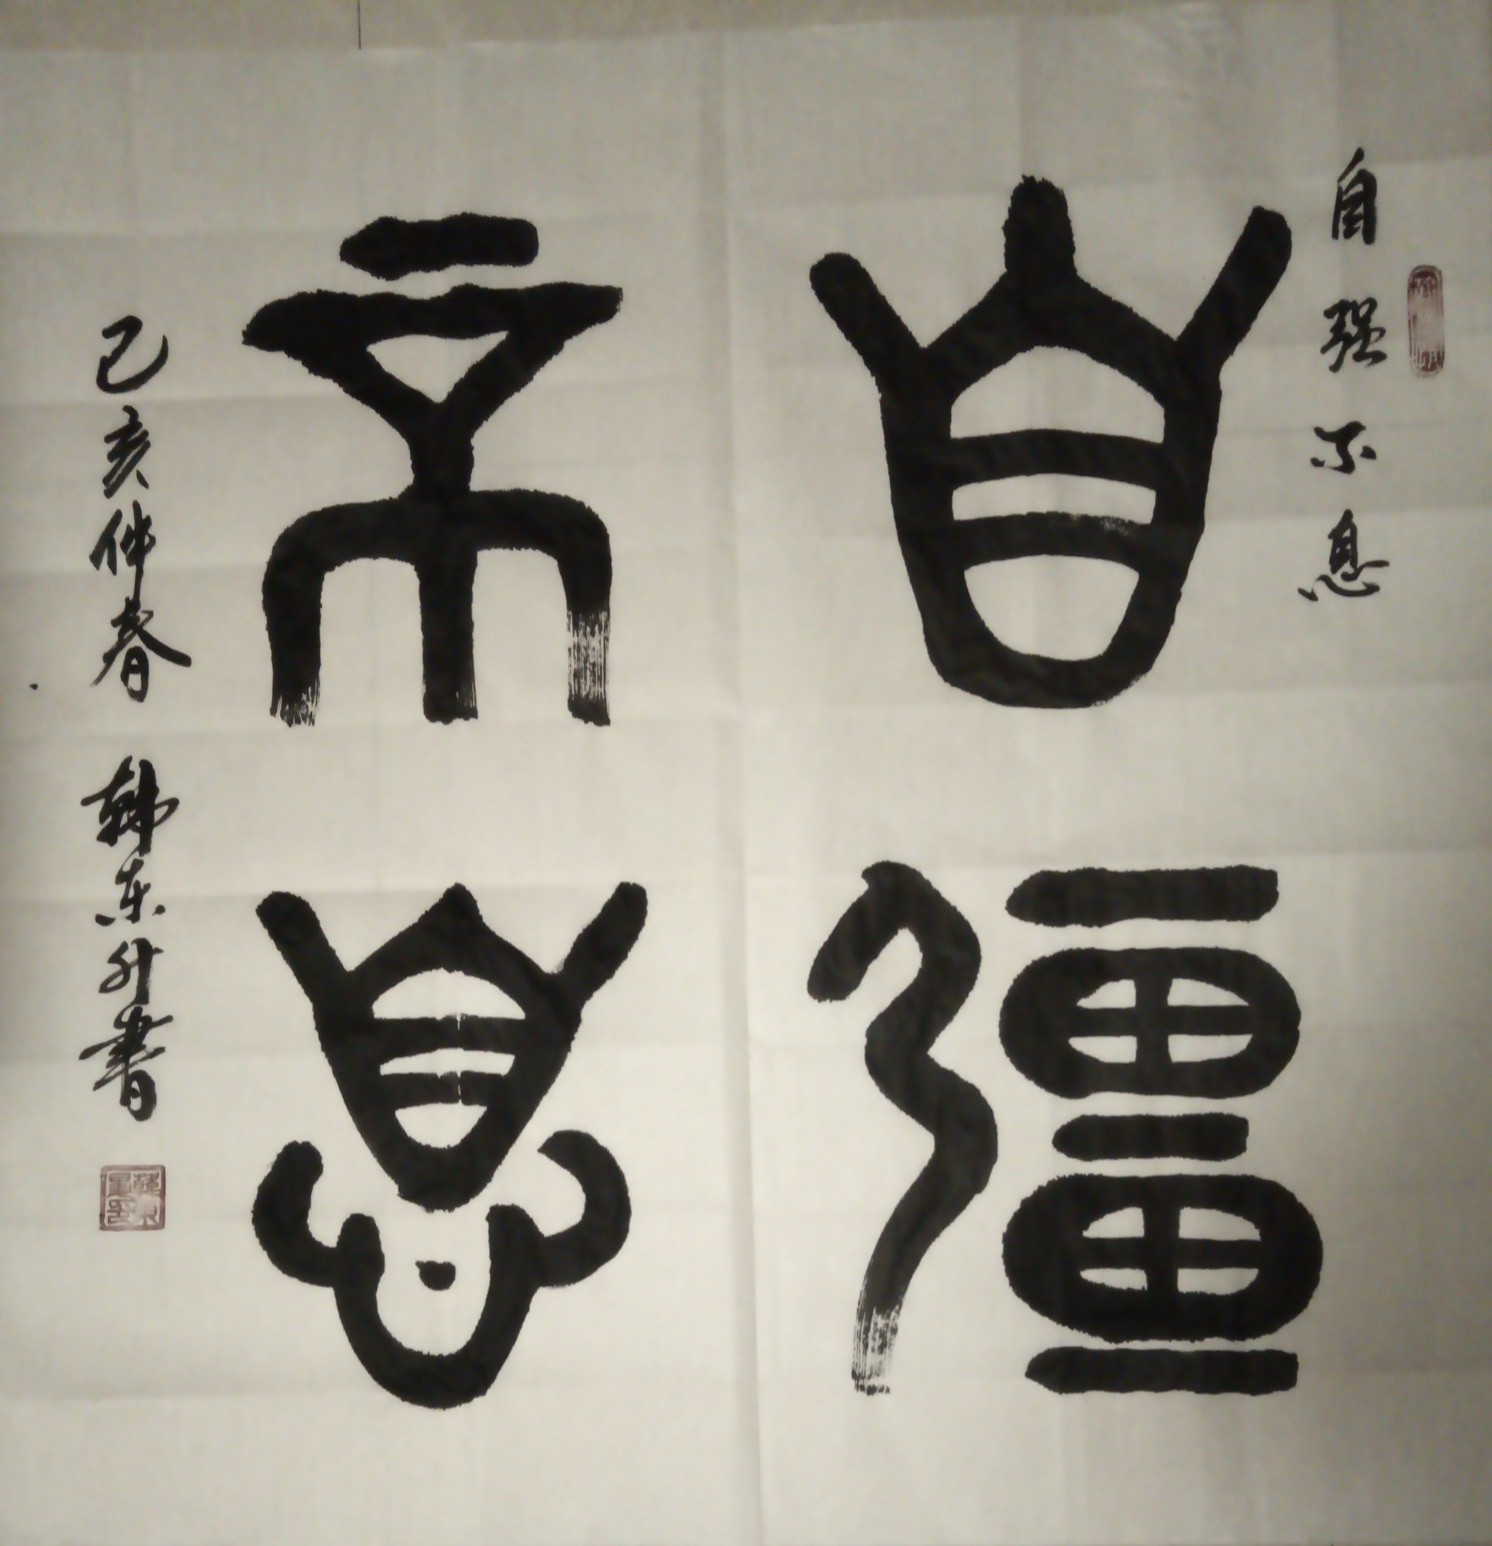 自强不息
自彊
不息
己亥仲春 韩东升書